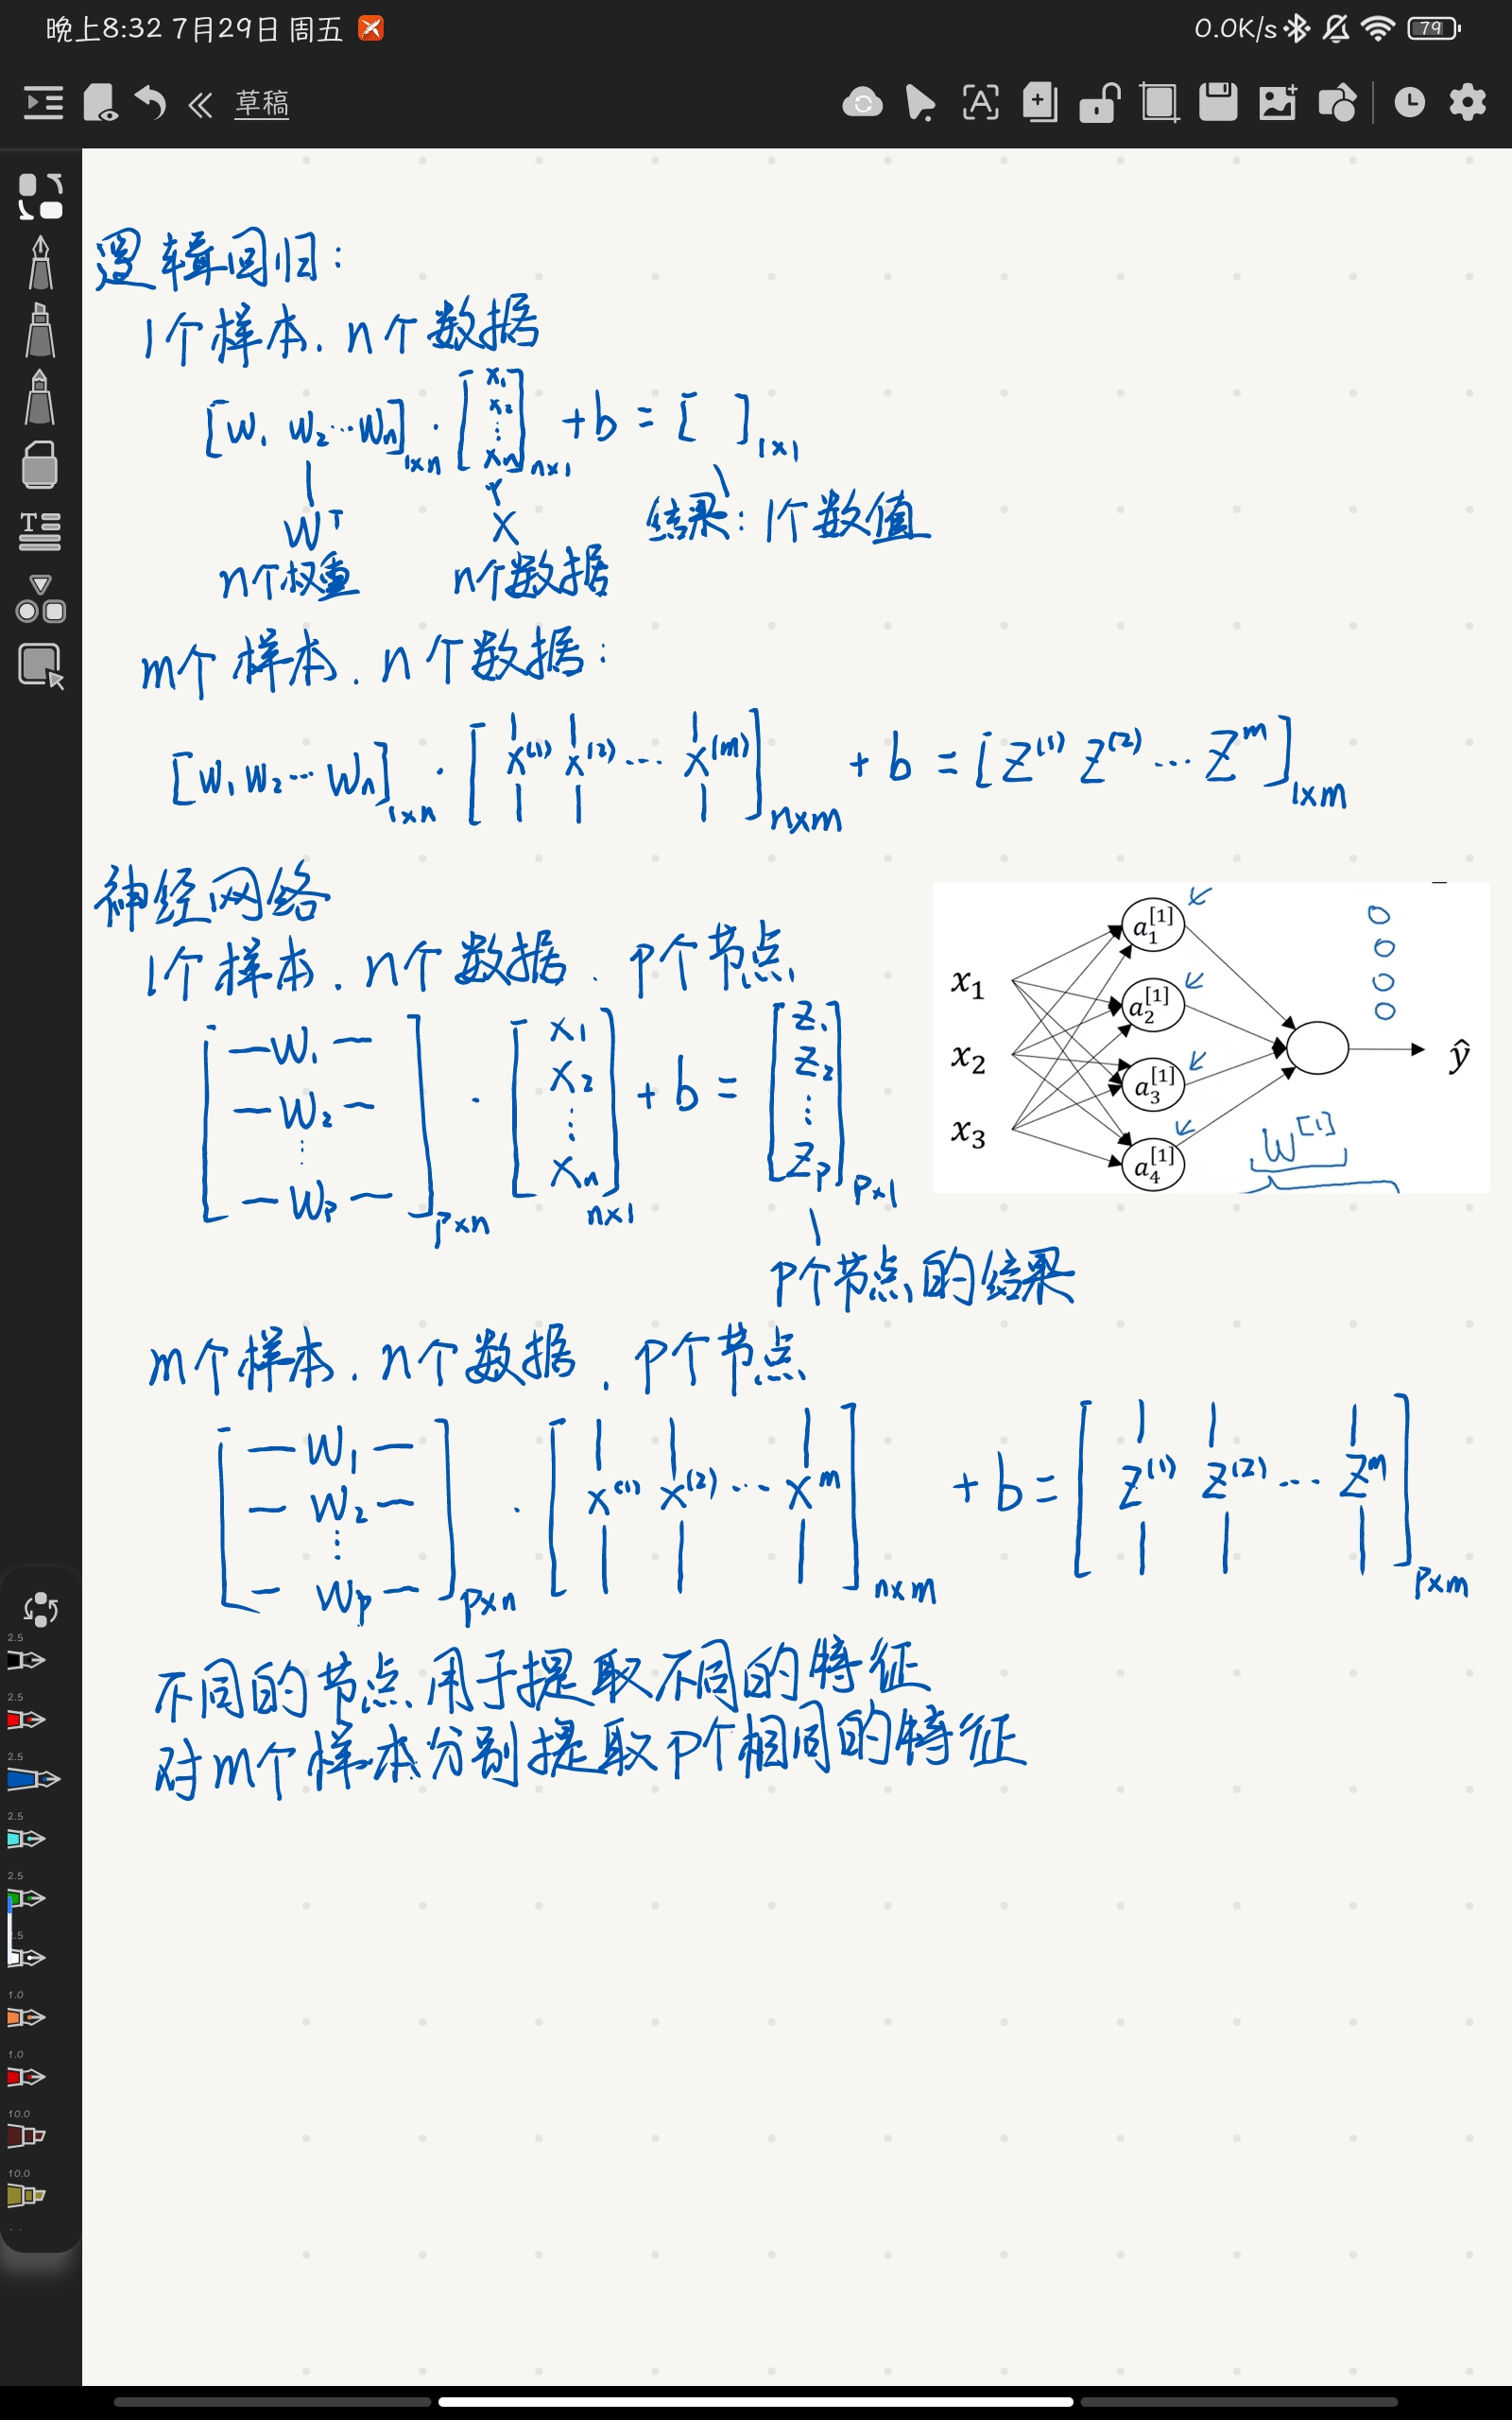 晚上8:32 7月29日 周五
0.0K/s 79
草稿
逻辑回归:
1个样本. n个数据
[w₁ w₂…wₙ]₁ₓₙ · [x₁ x₂ ⋮ xₙ]ₙₓ₁ + b = [ ]₁ₓ₁
Wᵀ X 结果: 1个数值
n个权重 n个数据
m个样本. n个数据:
[w₁ w₂…wₙ]₁ₓₙ · [x⁽¹⁾ x⁽²⁾ … x⁽ᵐ⁾]ₙₓₘ + b = [z⁽¹⁾ z⁽²⁾ … zᵐ]₁ₓₘ
神经网络
1个样本. n个数据. p个节点
[—w₁— —w₂— ⋮ —wₚ—]ₚₓₙ · [x₁ x₂ ⋮ xₙ]ₙₓ₁ + b = [z₁ z₂ ⋮ zₚ]ₚₓ₁
p个节点的结果
x₁
x₂
x₃
a₁[1]
a₂[1]
a₃[1]
a₄[1]
ŷ
W[1]
m个样本. n个数据. p个节点
[—w₁— —w₂— ⋮ —wₚ—]ₚₓₙ · [x⁽¹⁾ x⁽²⁾ … xᵐ]ₙₓₘ + b = [z⁽¹⁾ z⁽²⁾ … zᵐ]ₚₓₘ
不同的节点用于提取不同的特征
对m个样本分别提取p个相同的特征
2.5
2.5
2.5
2.5
2.5
1.0
1.0
10.0
10.0